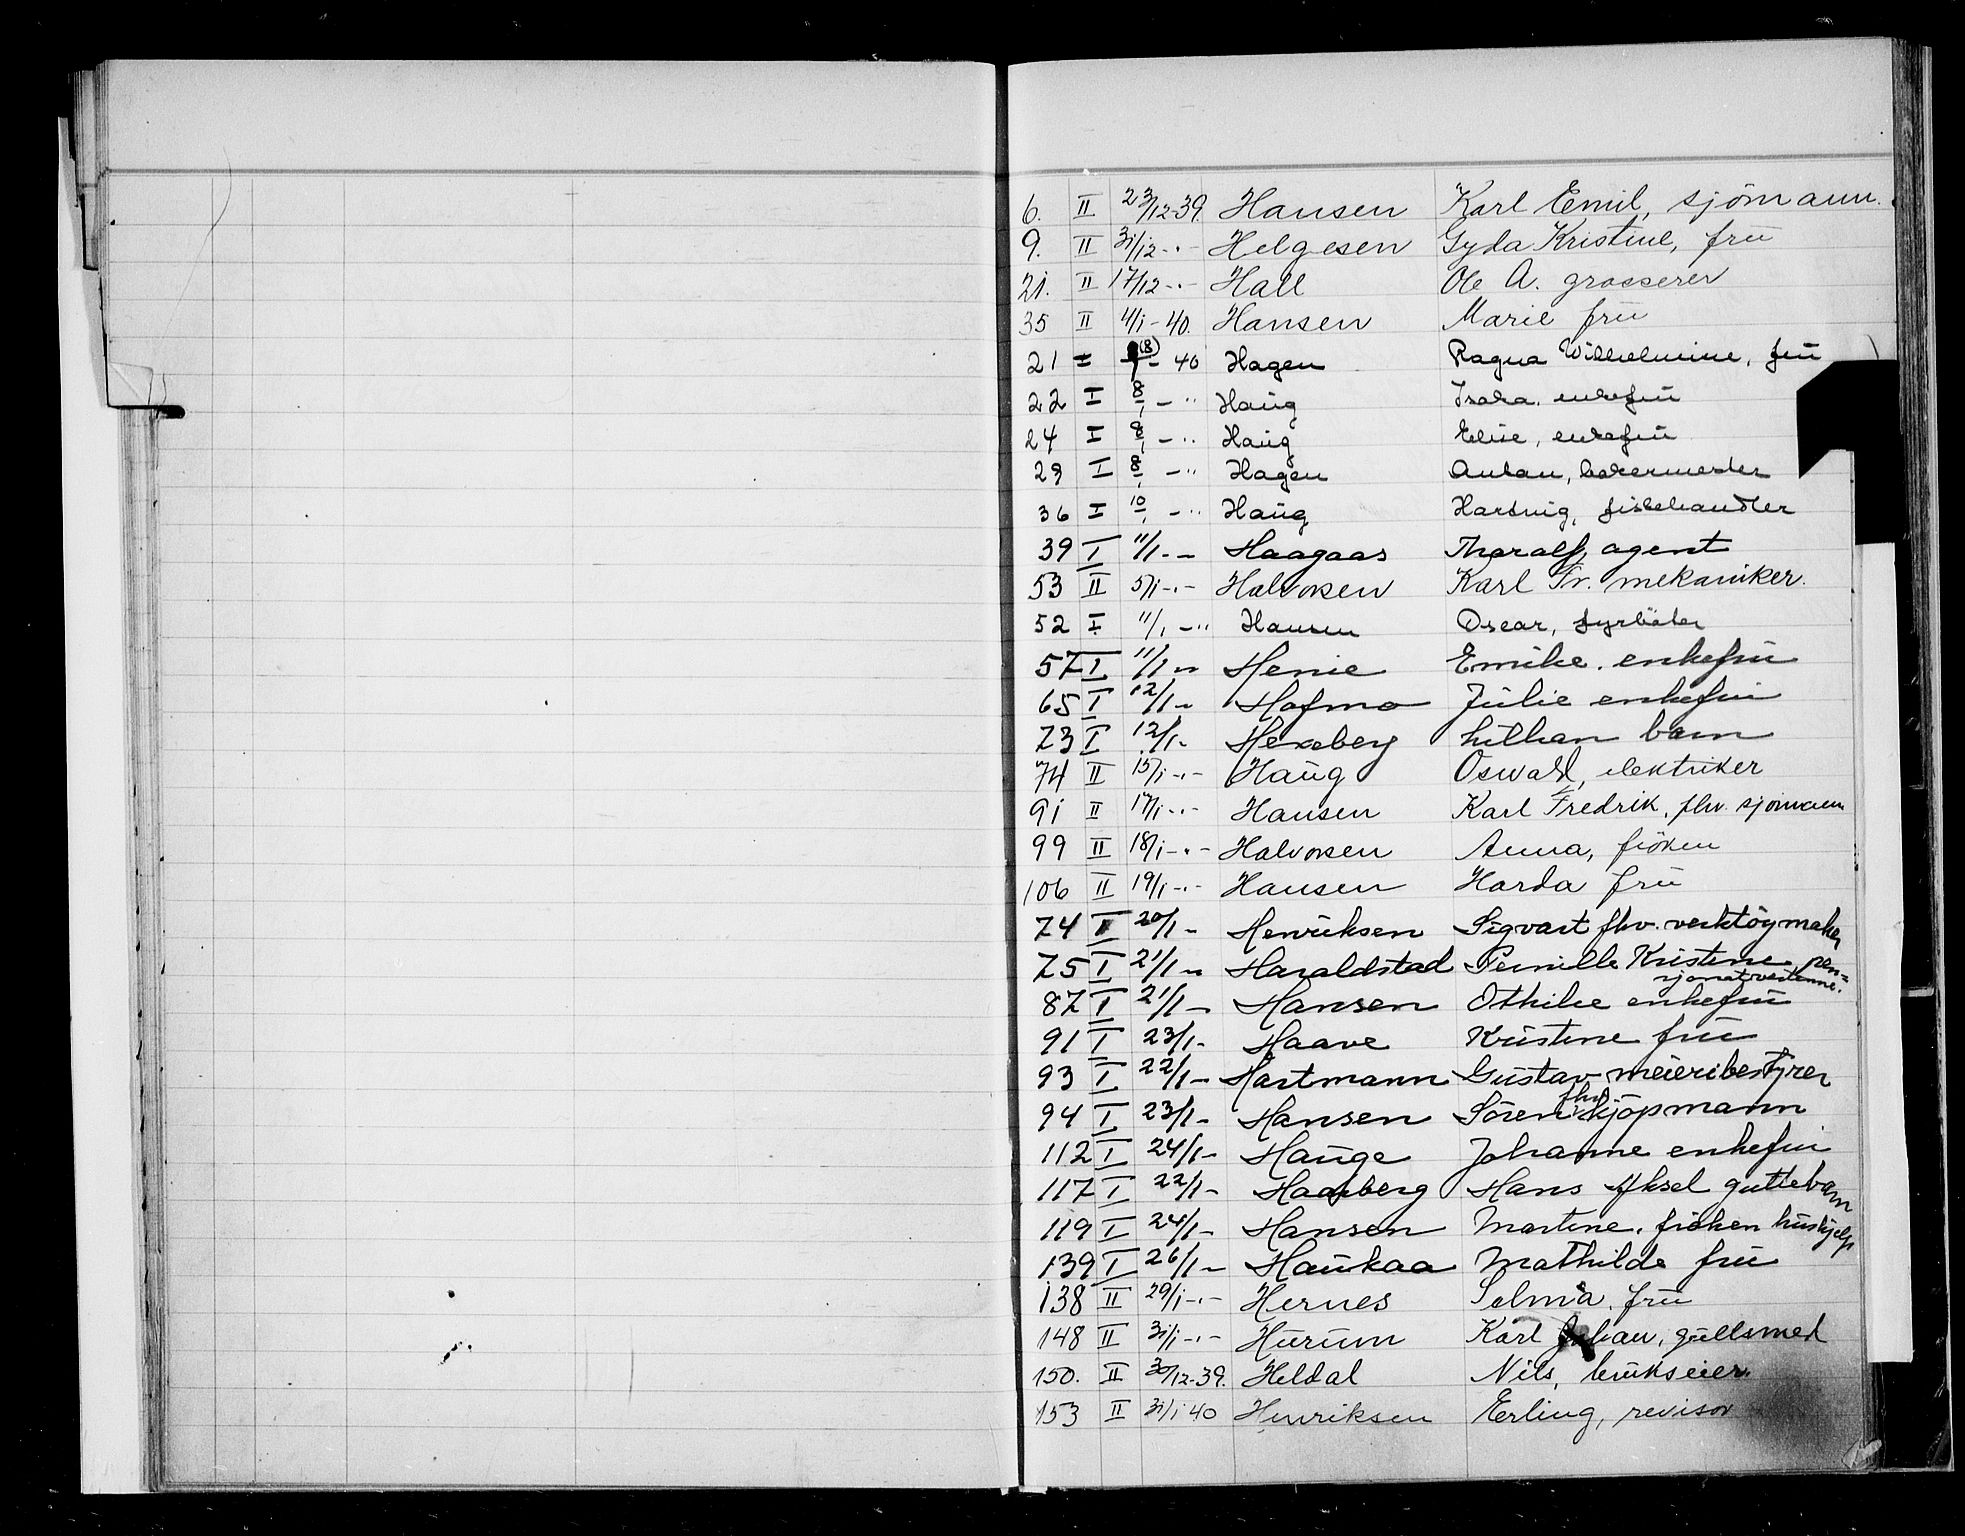 6. II 23/12-39. Hansen Karl Emil, sjömann.
9. II 31/12-"- Helgesen Gyda Kristine, frü
21. II 17/12-"- Hall Ole A. grosserer
35 II 4/1-40. Hansen Marie frü
21 I (8) 40 Hagen Ragna Wilhelmine, frü
22 I 8/1 - " Haüg enkefrü
24 I 8/1 - " Haüg Elise, enkefrü
29 I 8/1 - " Hagen Anton, bakermester
36 I 10/1 - " Haüg Hartvig, fiskehandler
39 I 11/1 - Haagaas Thoralf, agent
53 II 5/1-"- Halvorsen Karl Fr. mekaniker.
52 I 11/1 - " Hansen Oscar, fyrböter
57 I 11/1 - Henie Emilie. enkefrü
65 I 12/1 - Hofmo Jülie enkefrü
73 I 12/1 - Hexeberg Lillian barn
74 II 15/1-"- Haüg Oswald, elektriker
91 II 17/1-"- Hansen Karl Fredrik, fhv. sjömann
99 II 18/1-"- Halvorsen Anna, fröken
106 II 19/1-"- Hansen Harda frü
74 I 20/1 - Henriksen Sigvart fhv. verktöymaker
75 I 21/1 - Haraldstad Pernille Kristine pen=
sjonatvertinne.
87 I 21/1 - Hansen Othilie enkefrü
91 I 23/1 - Haave Kristine frü
93 I 22/1 - Hartmann Güstav meieribestyrer
94 I 23/1 - Hansen Sören fhv. kjöpmann
112 I 24/1 - Haüge Johanne enkefrü
117 I 22/1 - Haarberg Hans Aksel güttebarn
119 I 24/1 - Hansen Martine. fröken hüshjelp
139 I 26/1 - Haükaa Mathilde frü
138 II 29/1-"- Hernes Selma. frü
148 II 31/1-"- Hürüm Karl Johan, güllsmed
150. II 30/12-39. Heldal Nils, brükseier.
153 II 31/1 40 Henriksen Erling, revisor